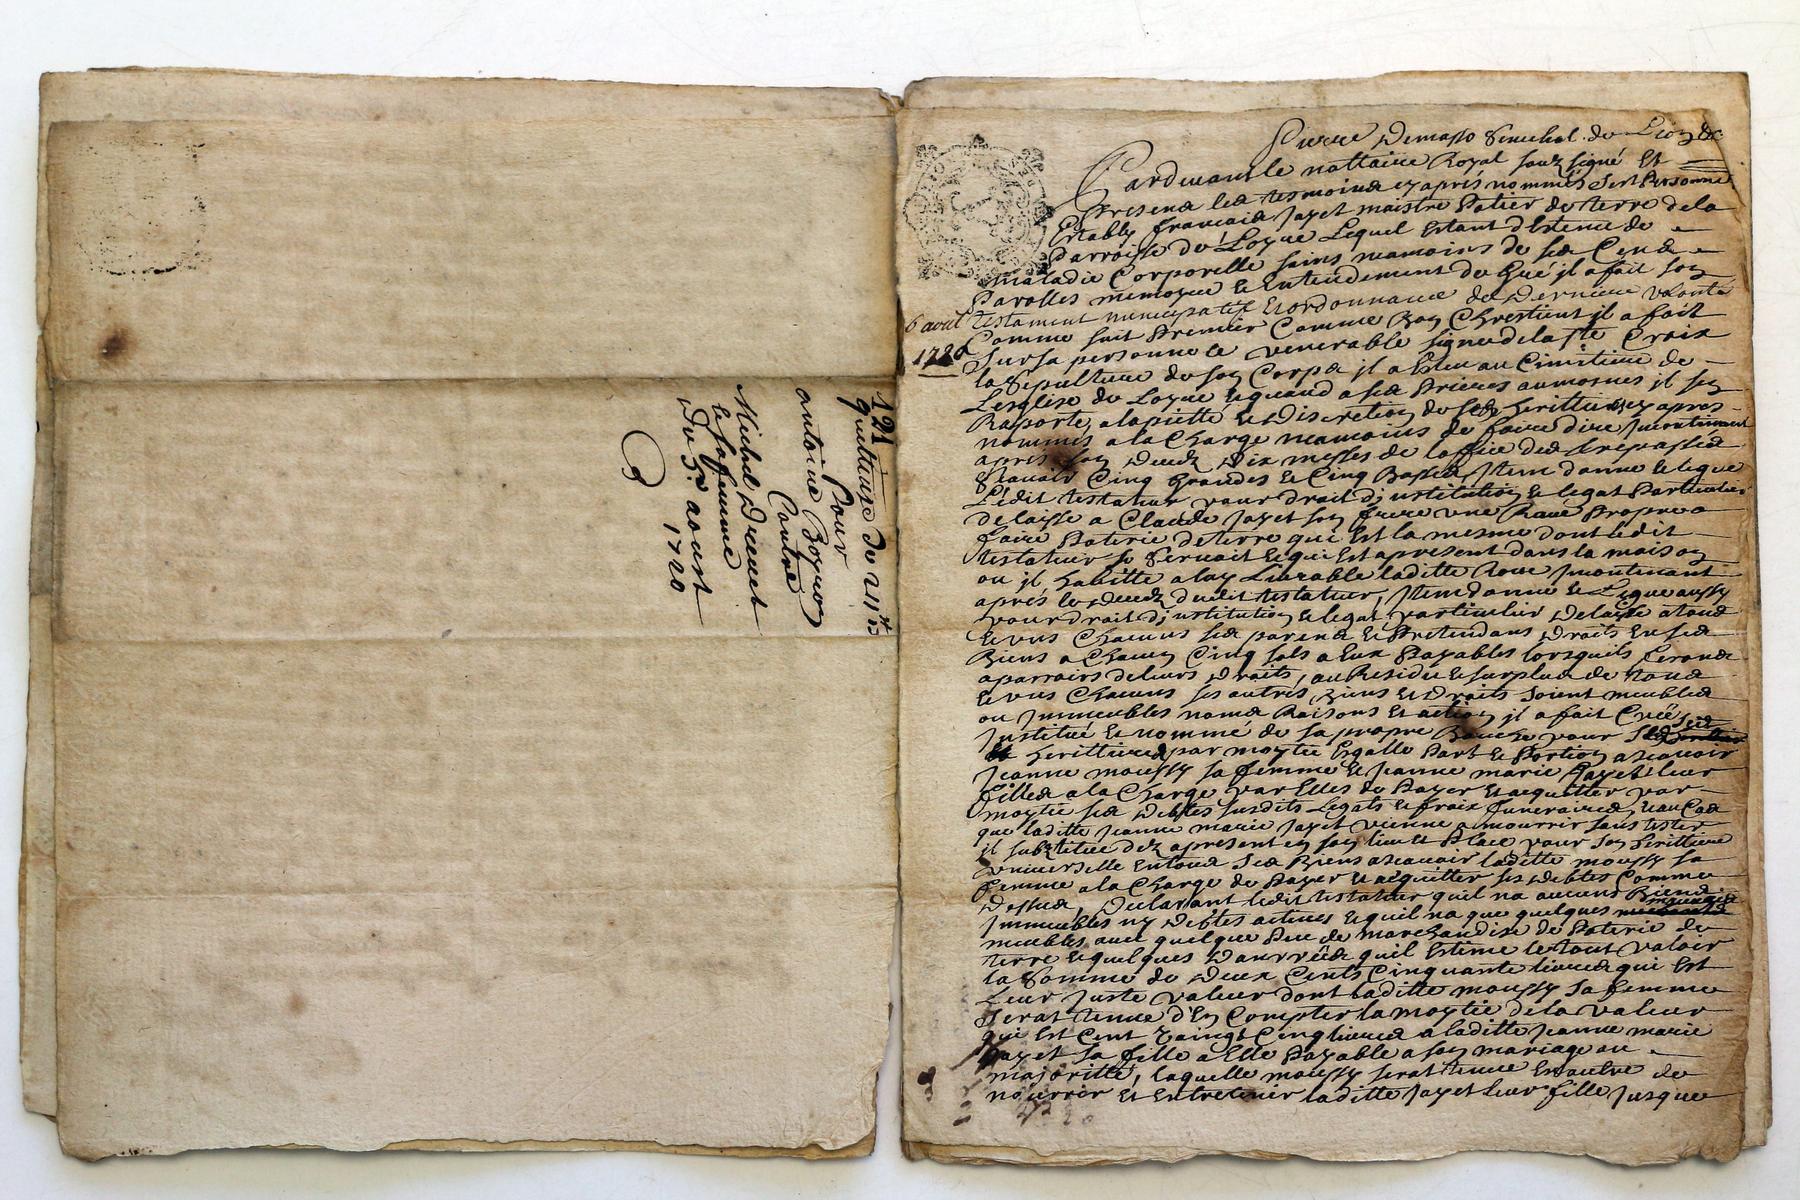 121
quittance de 211
Pour
antoine Boyron
Contre
Michel Drevet
et sa femme
Du 5e aoust
1720
6 avril
1720
Pierre Demasso Senechal de Lion &c
Pardevant le nottaire Royal souz signé Et
Presens les tesmoins cy aprés nommés Sest Personne
Estably francois Jayet maistre Potier de terre de la
Parroisse de Loyse Lequel Estant detenu de
maladie Corporelle sains neamoins de ses Cens
Parolles memoyre et Entendement de Gué il a fait son
testament nuncupatif Et ordonnance de Derniere volonté
Comme suit Premier Comme Bon Chrestient il a fait
Sur sa personne le venerable signe de la Ste Croix
la Sepulture de son Corps il a Esleu au Cimitiere de
Lesglise de Loyse et quand a ses Prieres aumosnes il sen
Raporte a la pietté et Discretion de ses herittiers cy apres
nommés a la Charge neamoins de faire dire Incontinent
aprés son Decedz Dix messes de loffice des trepassés
Scavoir Cinq Grandes et Cinq Basses, Item donne et legue
Ledit testateur pour droit d'institution et legat Particulier
delaisse a Claude Jayet son frere une Roue Propre a
faire Poterie de terre qui Est la mesme dont ledit
testateur se Servoit et qui Est apresent dans la maison
ou il habitte a luy Livrable laditte Roue Incontinant
aprés le Decedz dudit testateur, Item donne et Legue aussy
pour droit d'institution et legat particulier Delaisse a tous
et uns Chacuns ses parens et Pretendans Droits En ses
Biens a Chacun Cinq sols a Eux Payables lorsquils feronts
aparroirs de leurs Droits, au Residu et surplus de tous
et uns Chacuns ses autres Biens Et Droits soient meubles
ou Immeubles noms Raisons Et action il a fait Creé
Institué Et nommé de sa propre Bouche pour ses
herittieres par moytie Esgalle Part et Portion a scavoir
Jeanne moussy sa femme et Jeanne marie Jayet leur
fille a la Charge par Elles de Payer Et acquitter par
moytie ses Debtes susdits Legats et fraix funeraires, Et au Cas
que laditte Jeanne marie Jayet vienne a mourrir sans tester
il substitue dez apresent en son lieu et Place pour son herittiere
universelle En tous Ses Biens a scavoir laditte moussy sa
femme a la Charge de Payer et acquitter ses Debtes Comme
Dessus, Declarant ledit testateur quil na aucuns Biens
Immeubles ny Debtes actives et quil na que quelques
meubles avec quelque Peu de marchandise de Poterie de
terre et quelques Danrrées quil Estime le tout valoir
la Somme de Deux Cents Cinquante livres qui Est
Leur Juste valeur dont laditte moussy sa femme
Serat tenue d'En Compter la moytie de la valeur
qui Est Cent vaingt Cinq livres a laditte Jeanne marie
Jayet sa fille a Elle Payable a son mariage ou
majoritté, laquelle moussy serat tenue En outre de
nourrir Et Entretenir laditte Jayet leur fille Jusque